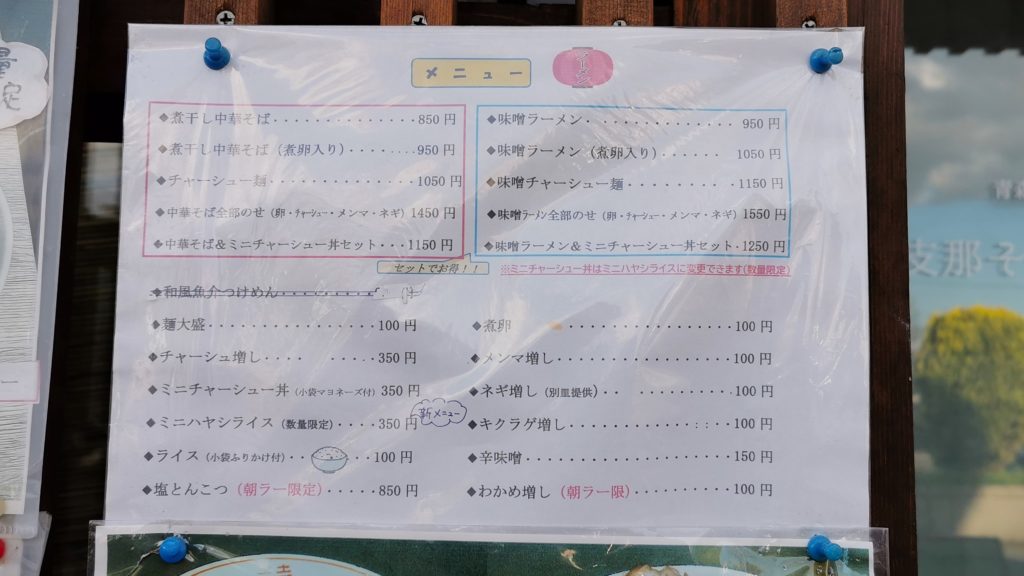 メニュー
ラーメン
◆煮干し中華そば・・・・・・・・・・・・・850円
◆煮干し中華そば（煮卵入り）・・・・・・・950円
◆チャーシュー麺・・・・・・・・・・・・・1050円
◆中華そば全部のせ（卵・チャーシュー・メンマ・ネギ）1450円
◆中華そば＆ミニチャーシュー丼セット・・・1150円
◆味噌ラーメン・・・・・・・・・・・・・950円
◆味噌ラーメン（煮卵入り）・・・・・・1050円
◆味噌チャーシュー麺・・・・・・・・1150円
◆味噌ラーメン全部のせ（卵・チャーシュー・メンマ・ネギ）1550円
◆味噌ラーメン＆ミニチャーシュー丼セット・1250円
セットでお得！！
※ミニチャーシュー丼はミニハヤシライスに変更できます(数量限定)
◆和風魚介つけめん
◆麺大盛・・・・・・・・・・・・・・100円
◆チャーシュ増し・・・・・・・・・・350円
◆ミニチャーシュー丼（小袋マヨネーズ付）350円
新メニュー
◆ミニハヤシライス（数量限定）・・・・350円
◆ライス（小袋ふりかけ付）・・100円
◆塩とんこつ（朝ラー限定）・・・・・850円
◆煮卵・・・・・・・・・・・・・・・・100円
◆メンマ増し・・・・・・・・・・・・・100円
◆ネギ増し（別皿提供）・・・・・・・・100円
◆キクラゲ増し・・・・・・・・・・・・100円
◆辛味噌・・・・・・・・・・・・・・・150円
◆わかめ増し（朝ラー限）・・・・・・・・100円
量
定
ー
支那そ